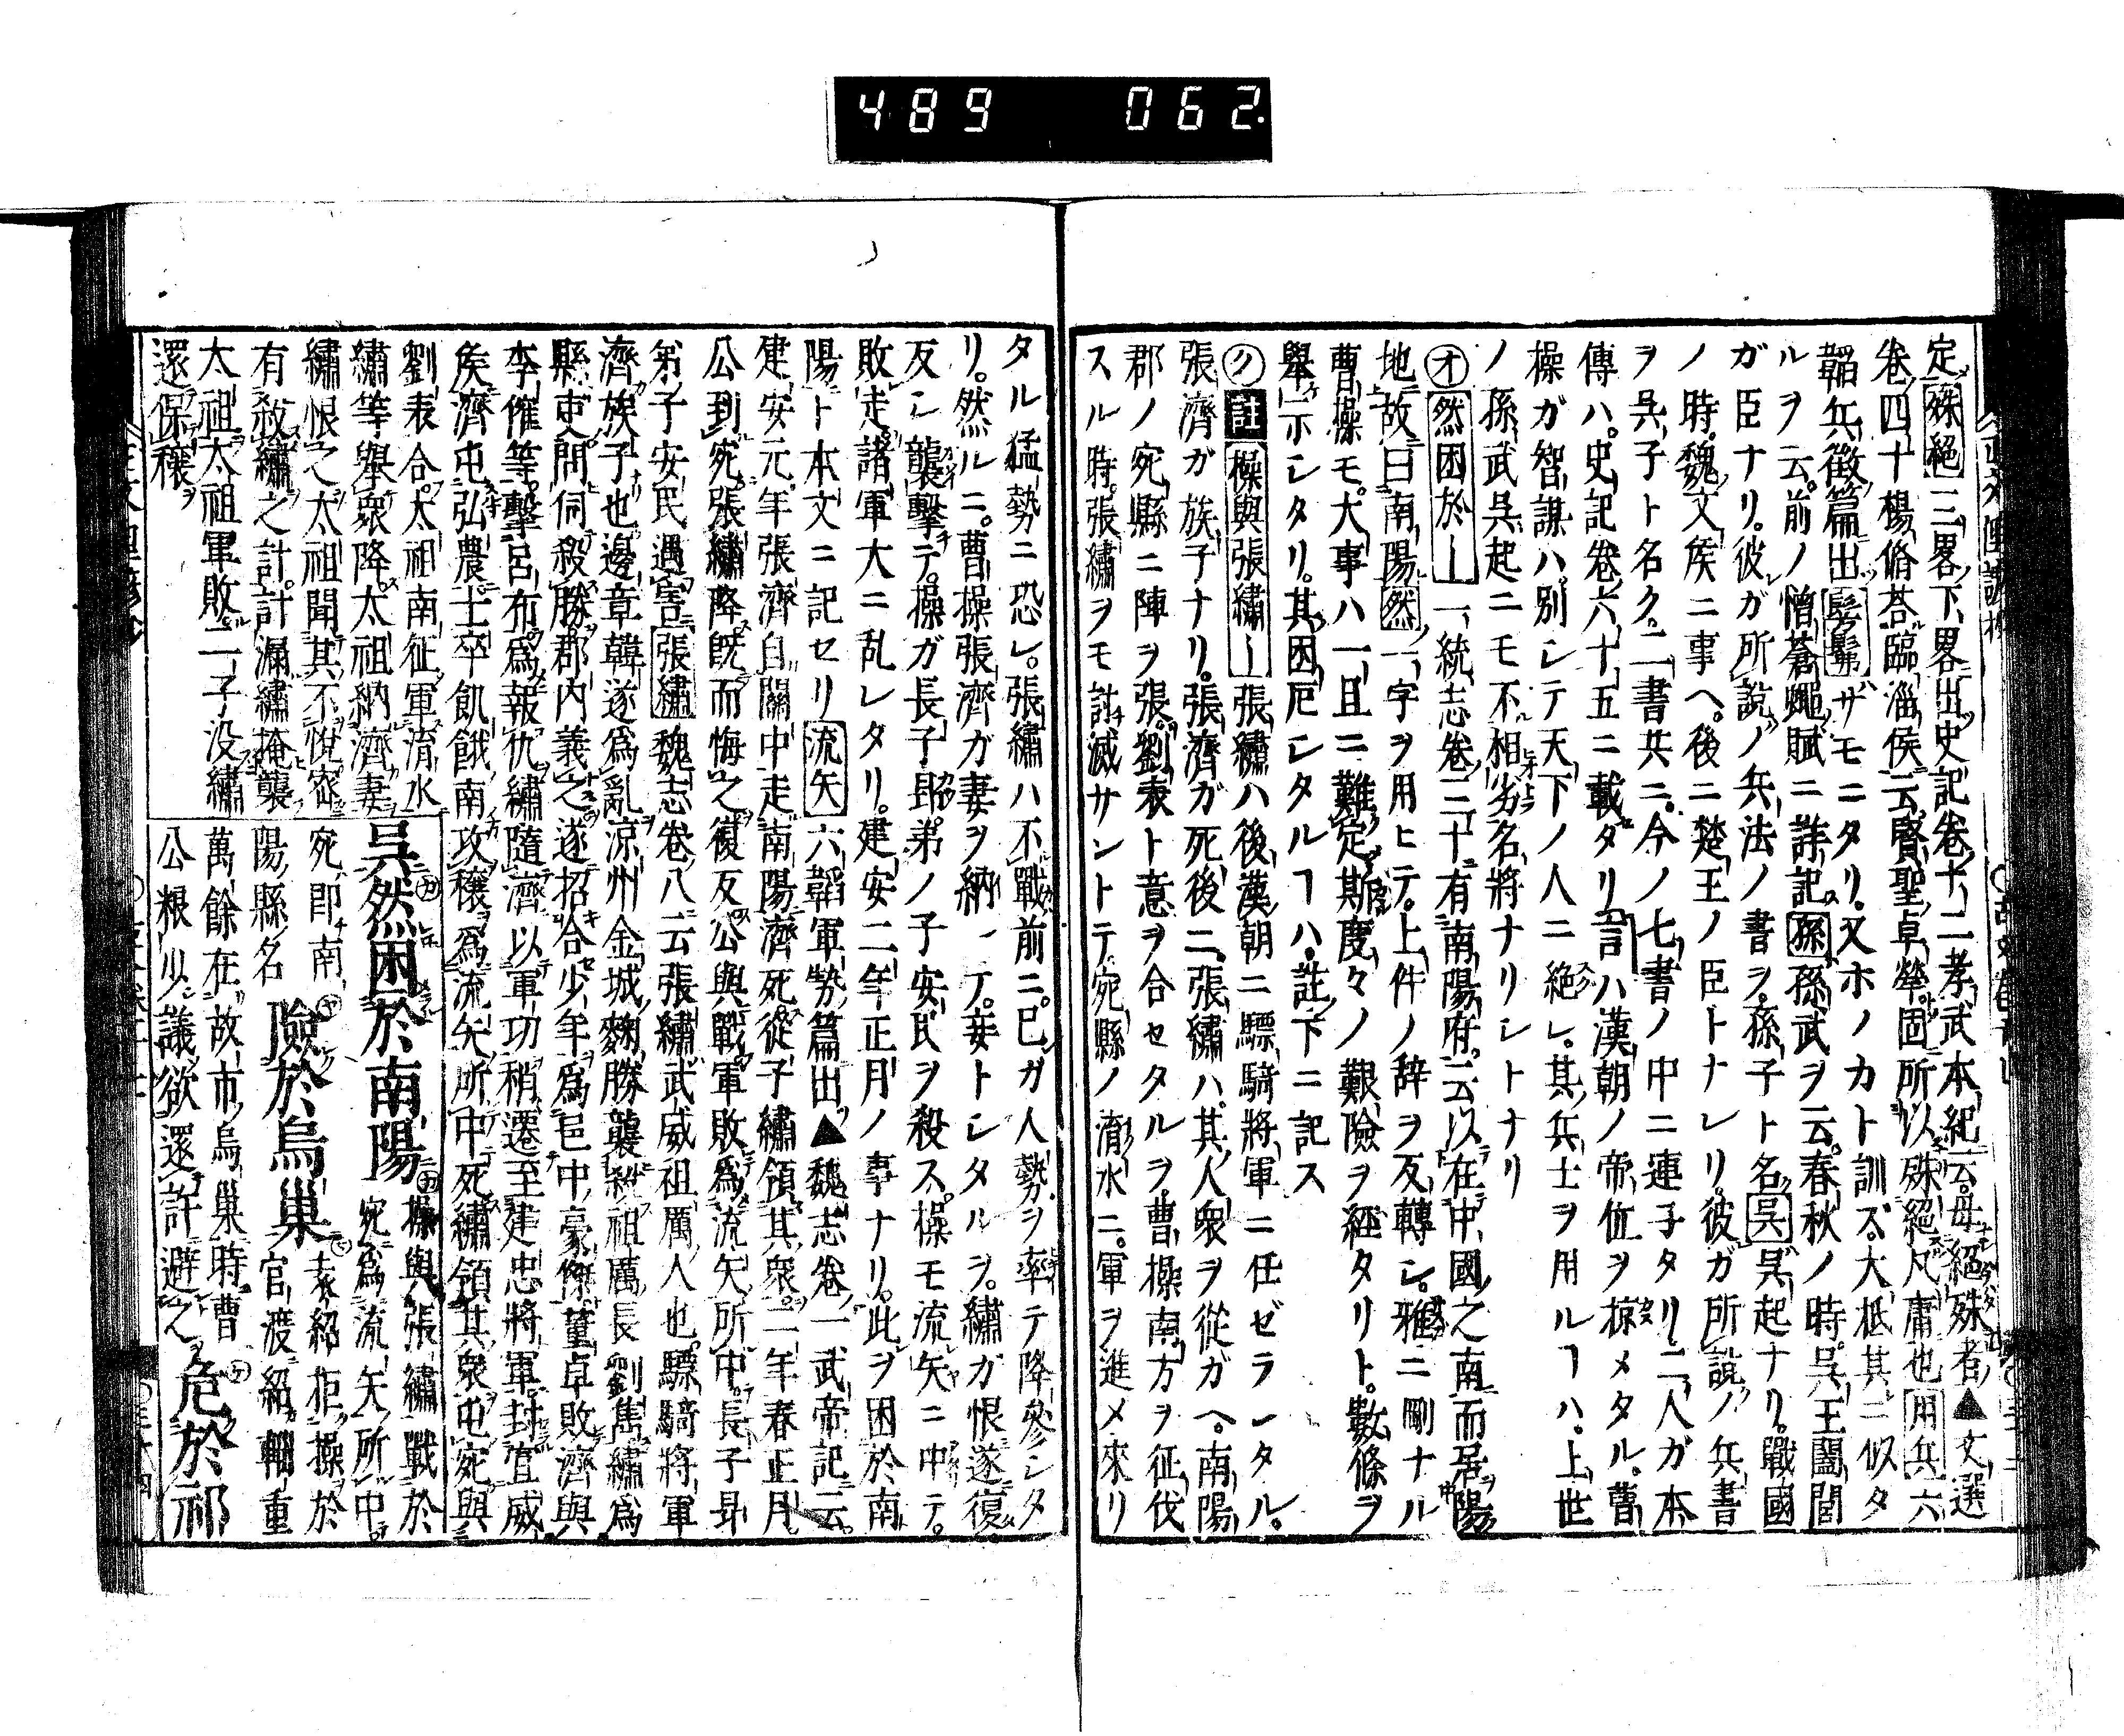 489 062.
定殊絕三畧下畧出史記卷十二孝武本紀云毋絕殊者▲文選
卷四十楊脩荅臨淄侯云賢聖卓犖固所以殊絕凡庸也用兵六
韜兵徵篇出髣髴サモニタリ又ホノカト訓ズ大抵其ニ似タ
ルヲ云前ノ憎蒼蠅賦ニ詳記孫孫武ヲ云春秋ノ時呉王闔閭
ガ臣ナリ彼ガ所說ノ兵法ノ書ヲ孫子ト名呉呉起ナリ戰國
ノ時魏文侯ニ事ヘ後ニ楚王ノ臣トナレリ彼ガ所說ノ兵書
ヲ呉子ト名ク二書共ニ今ノ七書ノ中ニ連子タリ二人ガ本
傳ハ史記卷六十五ニ載タリ言ハ漢朝ノ帝位ヲ掠メタル曹
操ガ智謀ハ別シテ天下ノ人ニ絶レ其兵士ヲ用ルヿハ上世
ノ孫武呉起ニモ不相劣名將ナリシトナリ
オ然困於一統志卷三十有南陽府云以在中國之南而居陽
地故曰南陽然一字ヲ用ヒテ上件ノ辞ヲ反轉シ雅ニ剛ナル
曹操モ大事ハ一且ニ難定斯度々ノ艱險ヲ經タリト數條ヲ
舉示シタリ其困厄シタルヿハ註下ニ記ス
ク註操與張繡張繡ハ後漢朝ニ驃騎將軍ニ任ゼラレタル
張濟ガ族子ナリ張濟ガ死後ニ張繡ハ其人衆ヲ從ガヘ南陽
郡ノ宛縣ニ陣ヲ張劉表ト意ヲ合セタルヲ曹操南方ヲ征伐
スル時張繡ヲモ討滅サントテ宛縣ノ淯水ニ軍ヲ進メ來リ
タル猛勢ニ恐レ張繡ハ不戰前ニ已ガ人勢ヲ率テ降參シタ
リ然ルニ曹操張濟ガ妻ヲ納テ妾トシタルヲ繡ガ恨遂復
反シ襲擊テ操ガ長子昂弟ノ子安民ヲ殺ス操モ流矢ニ中テ
敗走諸軍大ニ乱レタリ建安二年正月ノ事ナリ此ヲ困於南
陽ト本文ニ記セリ流矢六韜軍勢篇出▲魏志卷一武帝記云
建安元年張濟自關中走南陽濟死從子繡領其衆二年春正月
公到宛張繡降既而悔之復反公與戰軍敗爲流矢所中長子昂
弟子安民遇害張繡魏志卷八云張繡武威祖厲人也驃騎將軍
濟族子也邊章韓遂爲亂涼州金城麴勝襲殺祖厲長劉雋繡爲
縣吏間伺殺勝郡内義之遂招合少年爲邑中豪傑董卓敗濟與
李傕等擊呂布爲報仇繡隨濟以軍功稍遷至建忠將軍封宣威
侯濟屯弘農士卒飢餓南攻穰爲流矢所中死繡領其衆屯宛與
劉表合太祖南征軍淯水
繡等舉衆降太祖納濟妻
繡恨之太祖聞其不悅密
有殺繡之計計漏繡掩襲
太祖太祖軍敗二子没繡
還保穰
呉然困於南陽操與張繡戰於
宛爲流矢所中
宛即南
陽縣名險於烏巢袁紹拒操於
官渡紹輜重
萬餘在故市烏巢時曹
公粮少議欲還許避之危於祁